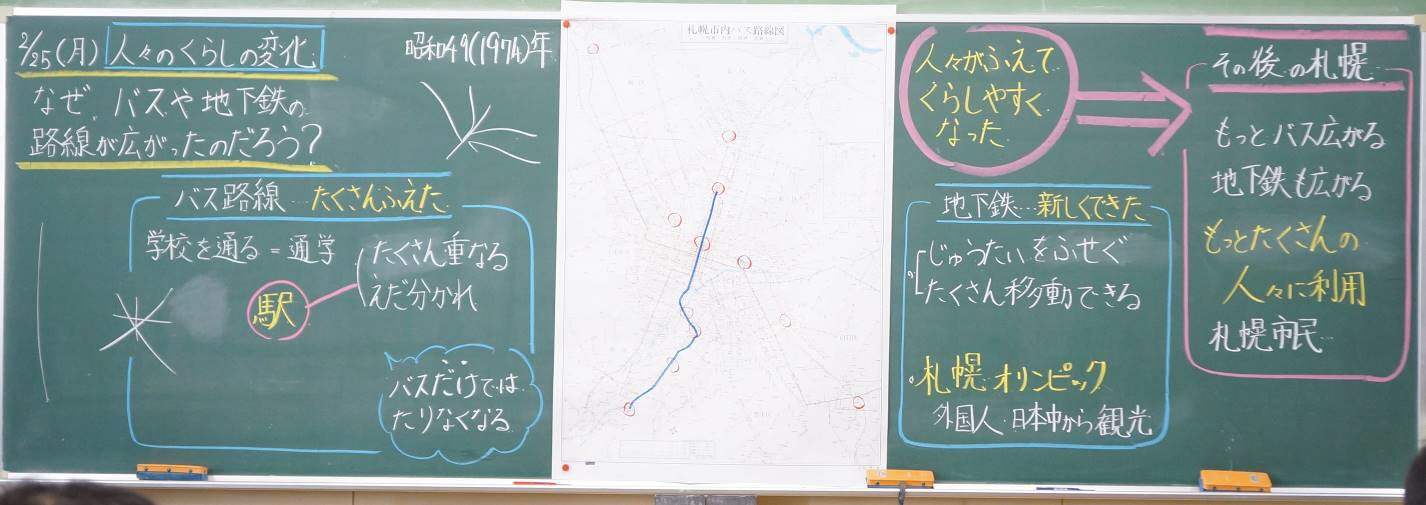 2/25(月) 人々のくらしの変化
なぜ、バスや地下鉄の
路線が広がったのだろう?
昭和49(1974)年
バス路線…たくさんふえた
学校を通る=通学
駅
たくさん重なる
えだ分かれ
バスだけでは
たりなくなる
札幌市内バス路線図
人々がふえて
くらしやすく
なった
地下鉄…新しくできた
じゅうたいをふせぐ
たくさん移動できる
札幌オリンピック
外国人・日本中から観光
その後の札幌
もっとバス広がる
地下鉄も広がる
もっとたくさんの
人々に利用
札幌市民